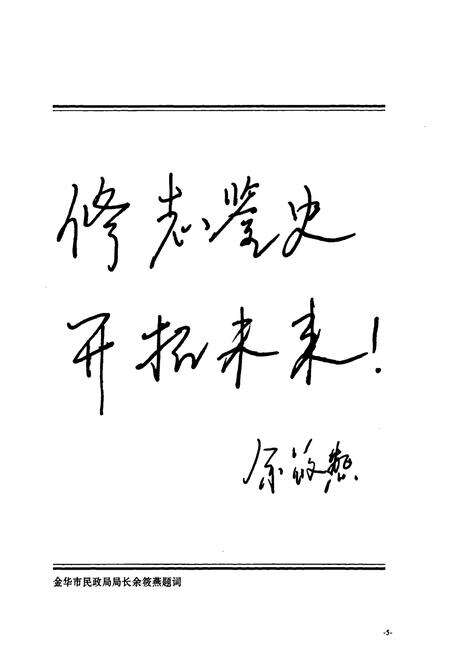 修志鉴史
开拓未来！
余筱燕
金华市民政局局长余筱燕题词
-5-